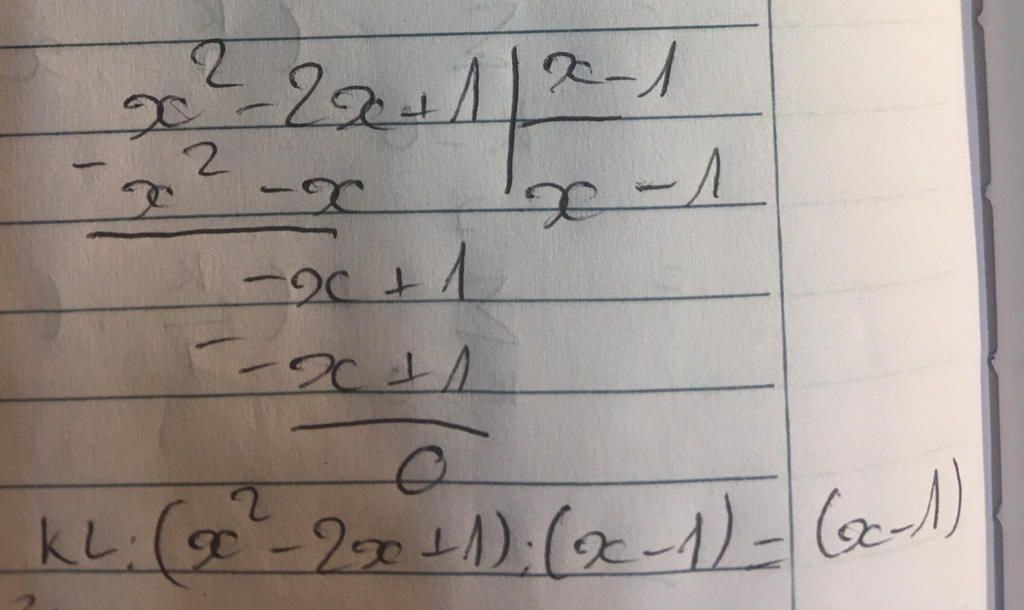 x² - 2x + 1 | x - 1
- x² - x | x - 1
- x + 1
- - x + 1
0
KL: (x² - 2x + 1) : (x - 1) = (x - 1)